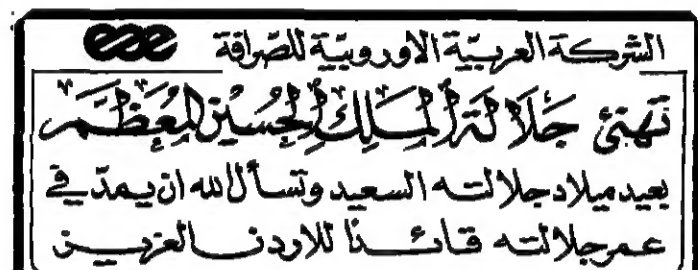 الشركة العربية الاوروبية للصرافة
تهنئ جلالة الملك الحسين المعظم
بعيد ميلاد جلالته السعيد وتسأل الله ان يمد في
عمر جلالته قائداً للاردن العزيز